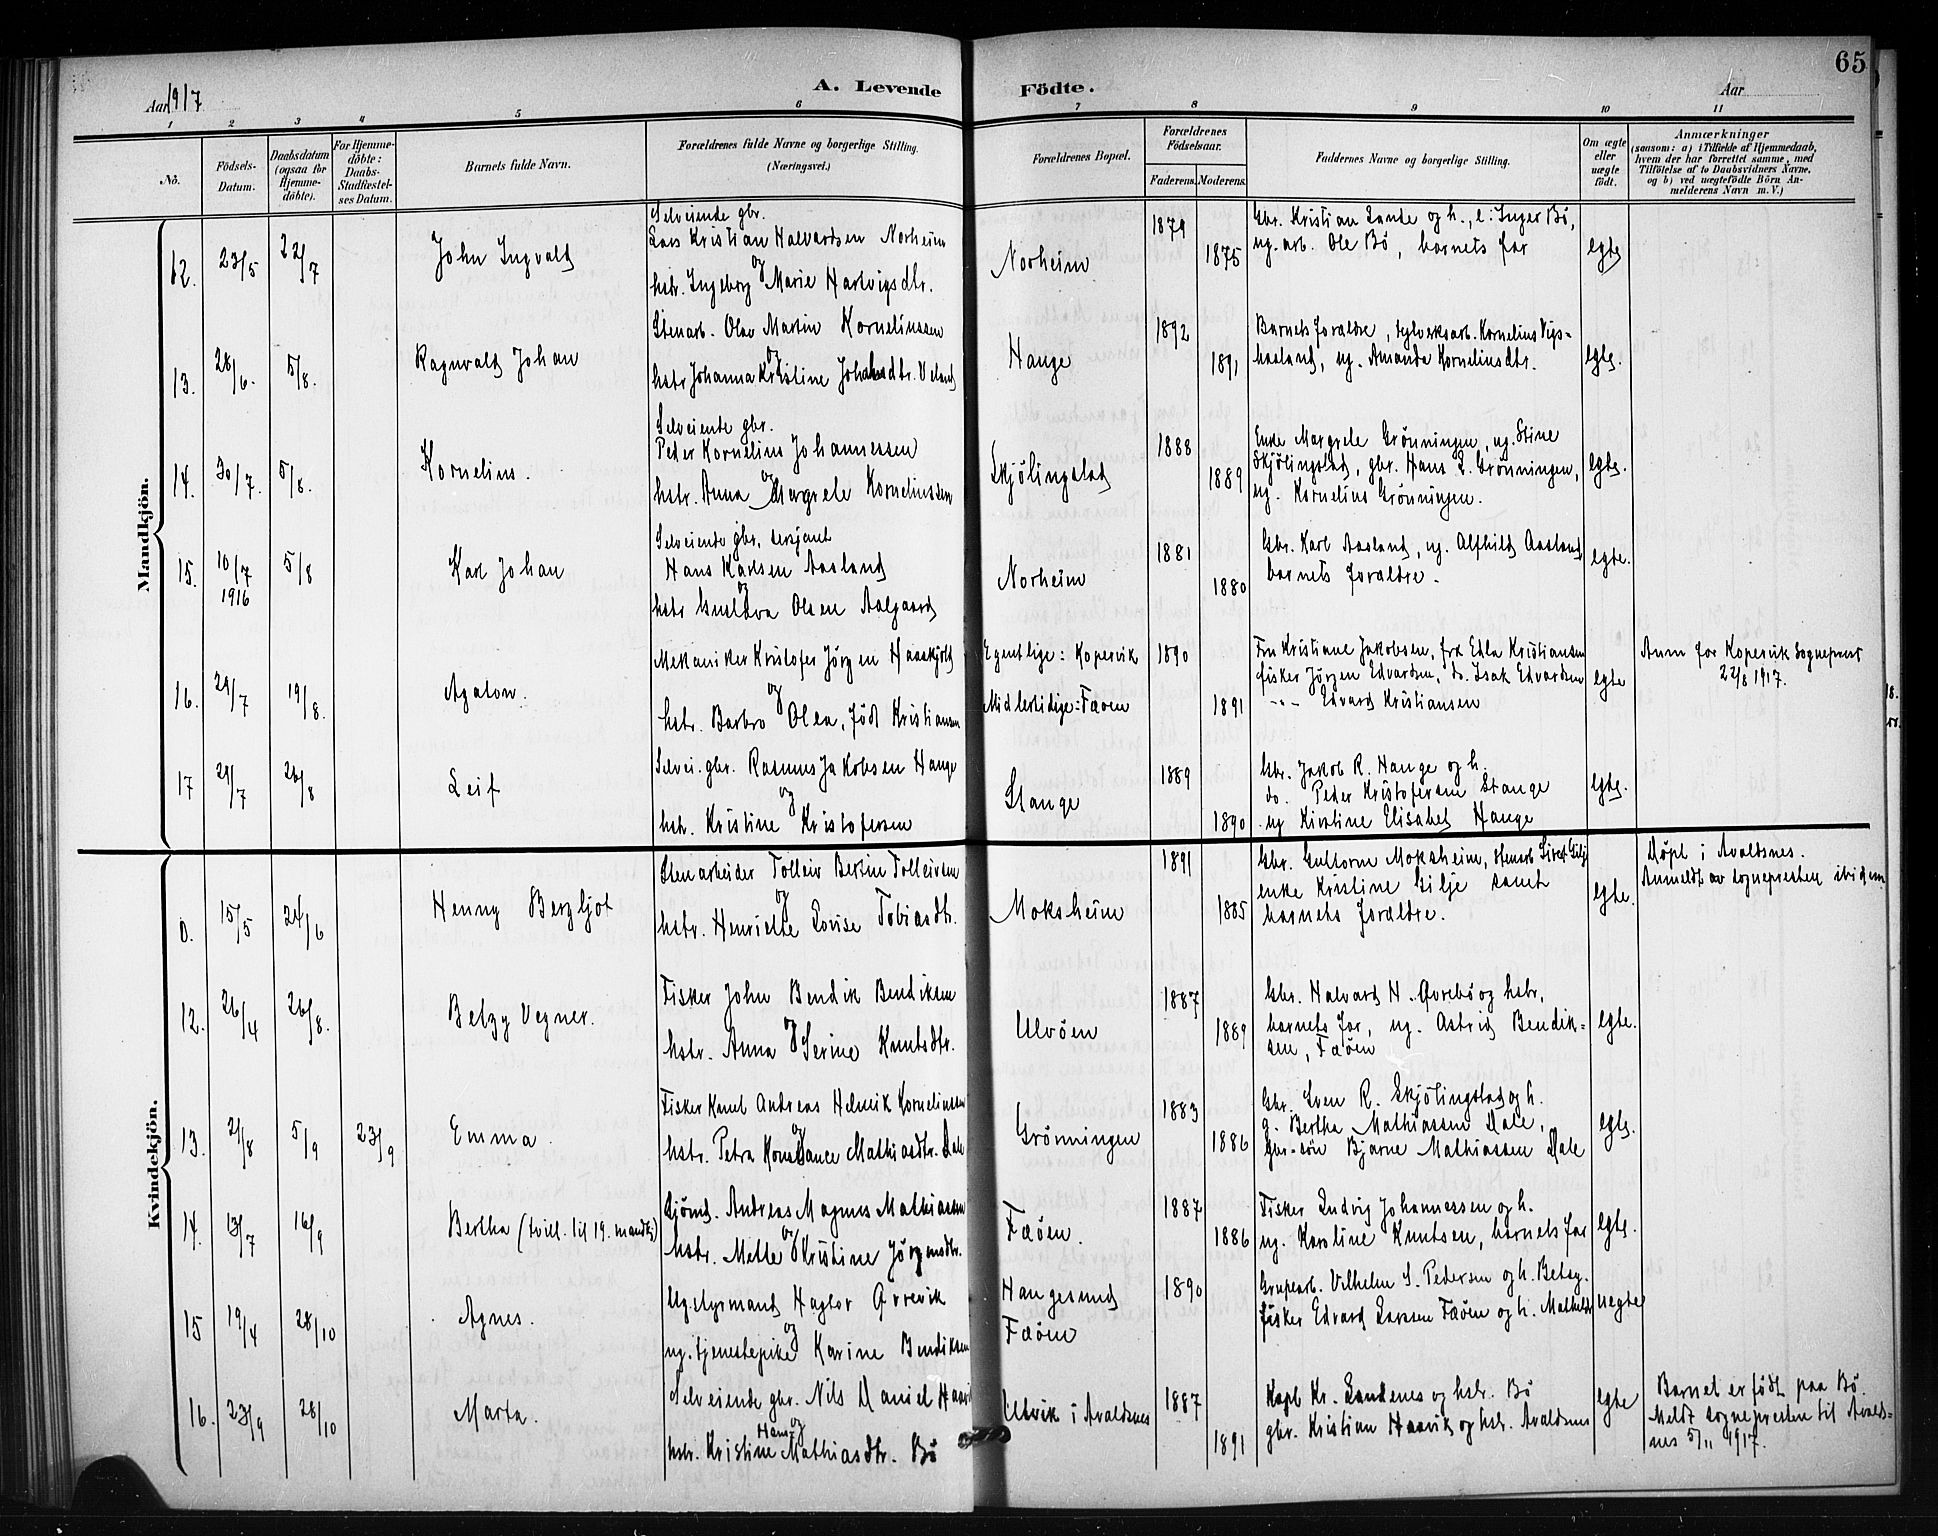 65
Aar 1917
A. Levende
Födte.
Aar
1 2 3 4 5 6 7 8 9 10 11
No.
Födsels-
Datum.
Daabsdatum
(ogsaa for
Hjemme-
döbte).
For Hjemme-
döbte:
Daabs-
Stadfæstel-
ses Datum.
Barnets fulde Navn.
Forældrenes fulde Navne og borgerlige Stilling.
(Næringsvei.)
Forældrenes Bopæl.
Forældrenes
Födselsaar.
Faderens.
Moderens.
Faddernes Navne og borgerlige Stilling.
Om ægte
eller
uægte
födt.
Anmærkninger
(saasom: a) i Tilfælde af Hjemmedaab,
hvem der har forrettet samme, med
Tilföielse af to Daabsvidners Navne,
og b) ved uægtefödte Börn An-
melderens Navn m. V.)
Mandkjön.
12. 23/5 22/7
John Ingvald
Selveiende gbr.
Lars Kristian Halvardsen Norheim
og
hstr. Ingeborg Marie Hartvigsdtr.
Norheim
1879
1875
Gbr. Kristian Lande og h., e: Inger Bö,
ug. arb. Ole Bö, barnets far
egte
13. 28/6. 5/8.
Ragnvald Johan
Stenarb. Olav Martin Korneliussen
og
hstr Johanna Kristine Johansdtr. Veland
Hauge
1892
1891
Barnets forældre, teglverksarb. Kornelius Vips-
haaland, ug. Amanda Korneliusdtr.
egte.
14. 30/7. 5/8.
Kornelius.
Selveiende gbr.
Peder Kornelius Johannessen
og
hstr. Anna Margrete Korneliussen
Skjölingstad
1888
1889
Enke Margrete Grönningen, ug. Stine
Skjölingstad, gbr. Hans L. Grönningen,
ug. Kornelius Grönningen.
egte.
15. 10/7 5/8
1916
Karl Johan
Selveiende gbr. sersjant
Hans Karlsen Aasland
og
hstr Gustava Olsen Aalgaard
Norheim
1881
1880
Gbr. Karl Aasland, ug. Alfhild Aasland
barnets forældre.
egte.
16. 29/7 19/8.
Agaton.
Mekaniker Kristofer Jörgen Haaskjold
og
hstr. Barbro Olea, född Kristiansen
Egentlige: Kopervik
Midlertidige: Fæöen
1890
1891
Fru Kristiane Jakobsen, frk Edla Kristiansen
fisker Jörgen Edvardsen, do. Isak Edvardsen
-"- Edvard Kristiansen
egte
Anm for Kopervik sogneprest
22/8 1917.
17 29/7 26/8
Leif
Selvei. gbr. Rasmus Jakobsen Hauge
og
hstr. Kristine Kristofersen
Stange
1889
1890
Gbr. Jakob R. Hauge og h.
do. Peder Kristofersen Stange
ug Kirstine Elisabet Hauge
egte.
Kvindekjön.
0. 15/5 24/6
Henny Bergljot
Stenarbeider Tolleiv Bertin Tolleivsen
og
hstr. Henriette Lovise Tobiasdtr.
Moksheim
1891
1885
Gbr. Guttorm Moksheim, stenarb Sivert Gilje
enke Kristine Gilje samt
barnets forældre.
egte.
Döpt i Avaldsnes.
Anmeldt av sognepresten ibidem
12. 26/4 26/8.
Betzy Vegner.
Fisker John Bendik Bendiksen
og
hstr. Anna Serine Knutsdtr.
Ulvöen
1887
1889
Gbr. Halvard H. Øvrebö og hstr,
barnets far, ug. Astrid Bendik-
sen, Fæöen
egte.
13. 21/8 5/9 23/9
Emma.
Fisker Knut Andreas Helmik Korneliussen
og
hstr. Petra Konstance Mathiasdtr. Dale
Grönningen
1883
1886
Gbr. Sven R. Skjölingstad og h.
g. Bertha Mathiassen Dale,
gbr-sön Bjarne Mathiassen Dale
egte.
14. 13/7 16/9
Bertha (tvill. til 19. mandkj)
Sjömd. Andreas Magnus Mathiassen
og
hstr. Mette Kristine Jörgensdtr.
Fæöen.
1887
1886
Fisker Ludvig Johannessen og h.
ug. Karoline Knutsen, barnets far
egte.
15 19/4 28/10
Agnes.
Ug. styrmand Haftor Ørrevik
og
ug. tjenestepike Karine Bendiksen
Haugesund
Fæöen
1890
Grupearb. Vilhelm S. Pedersen og h. Betsy.
fisker Edvard Larssen Fæöen og h. Mathilde
uegte
16. 23/9 28/10
Marta.
Selveiende gbr. Nils Daniel Haavik
og
hstr. Kristine Hans Mathiasdtr. Bö
Utvik i Avaldsnes
1887
1891
Kapt Kr. Landenes og hstr. Bö
gbr. Kristian Haavik og hstr. Avaldsnes
egte
Barnet er födt paa Bö.
Meldt sognepresten til Avalds-
nes 5/11 1917.